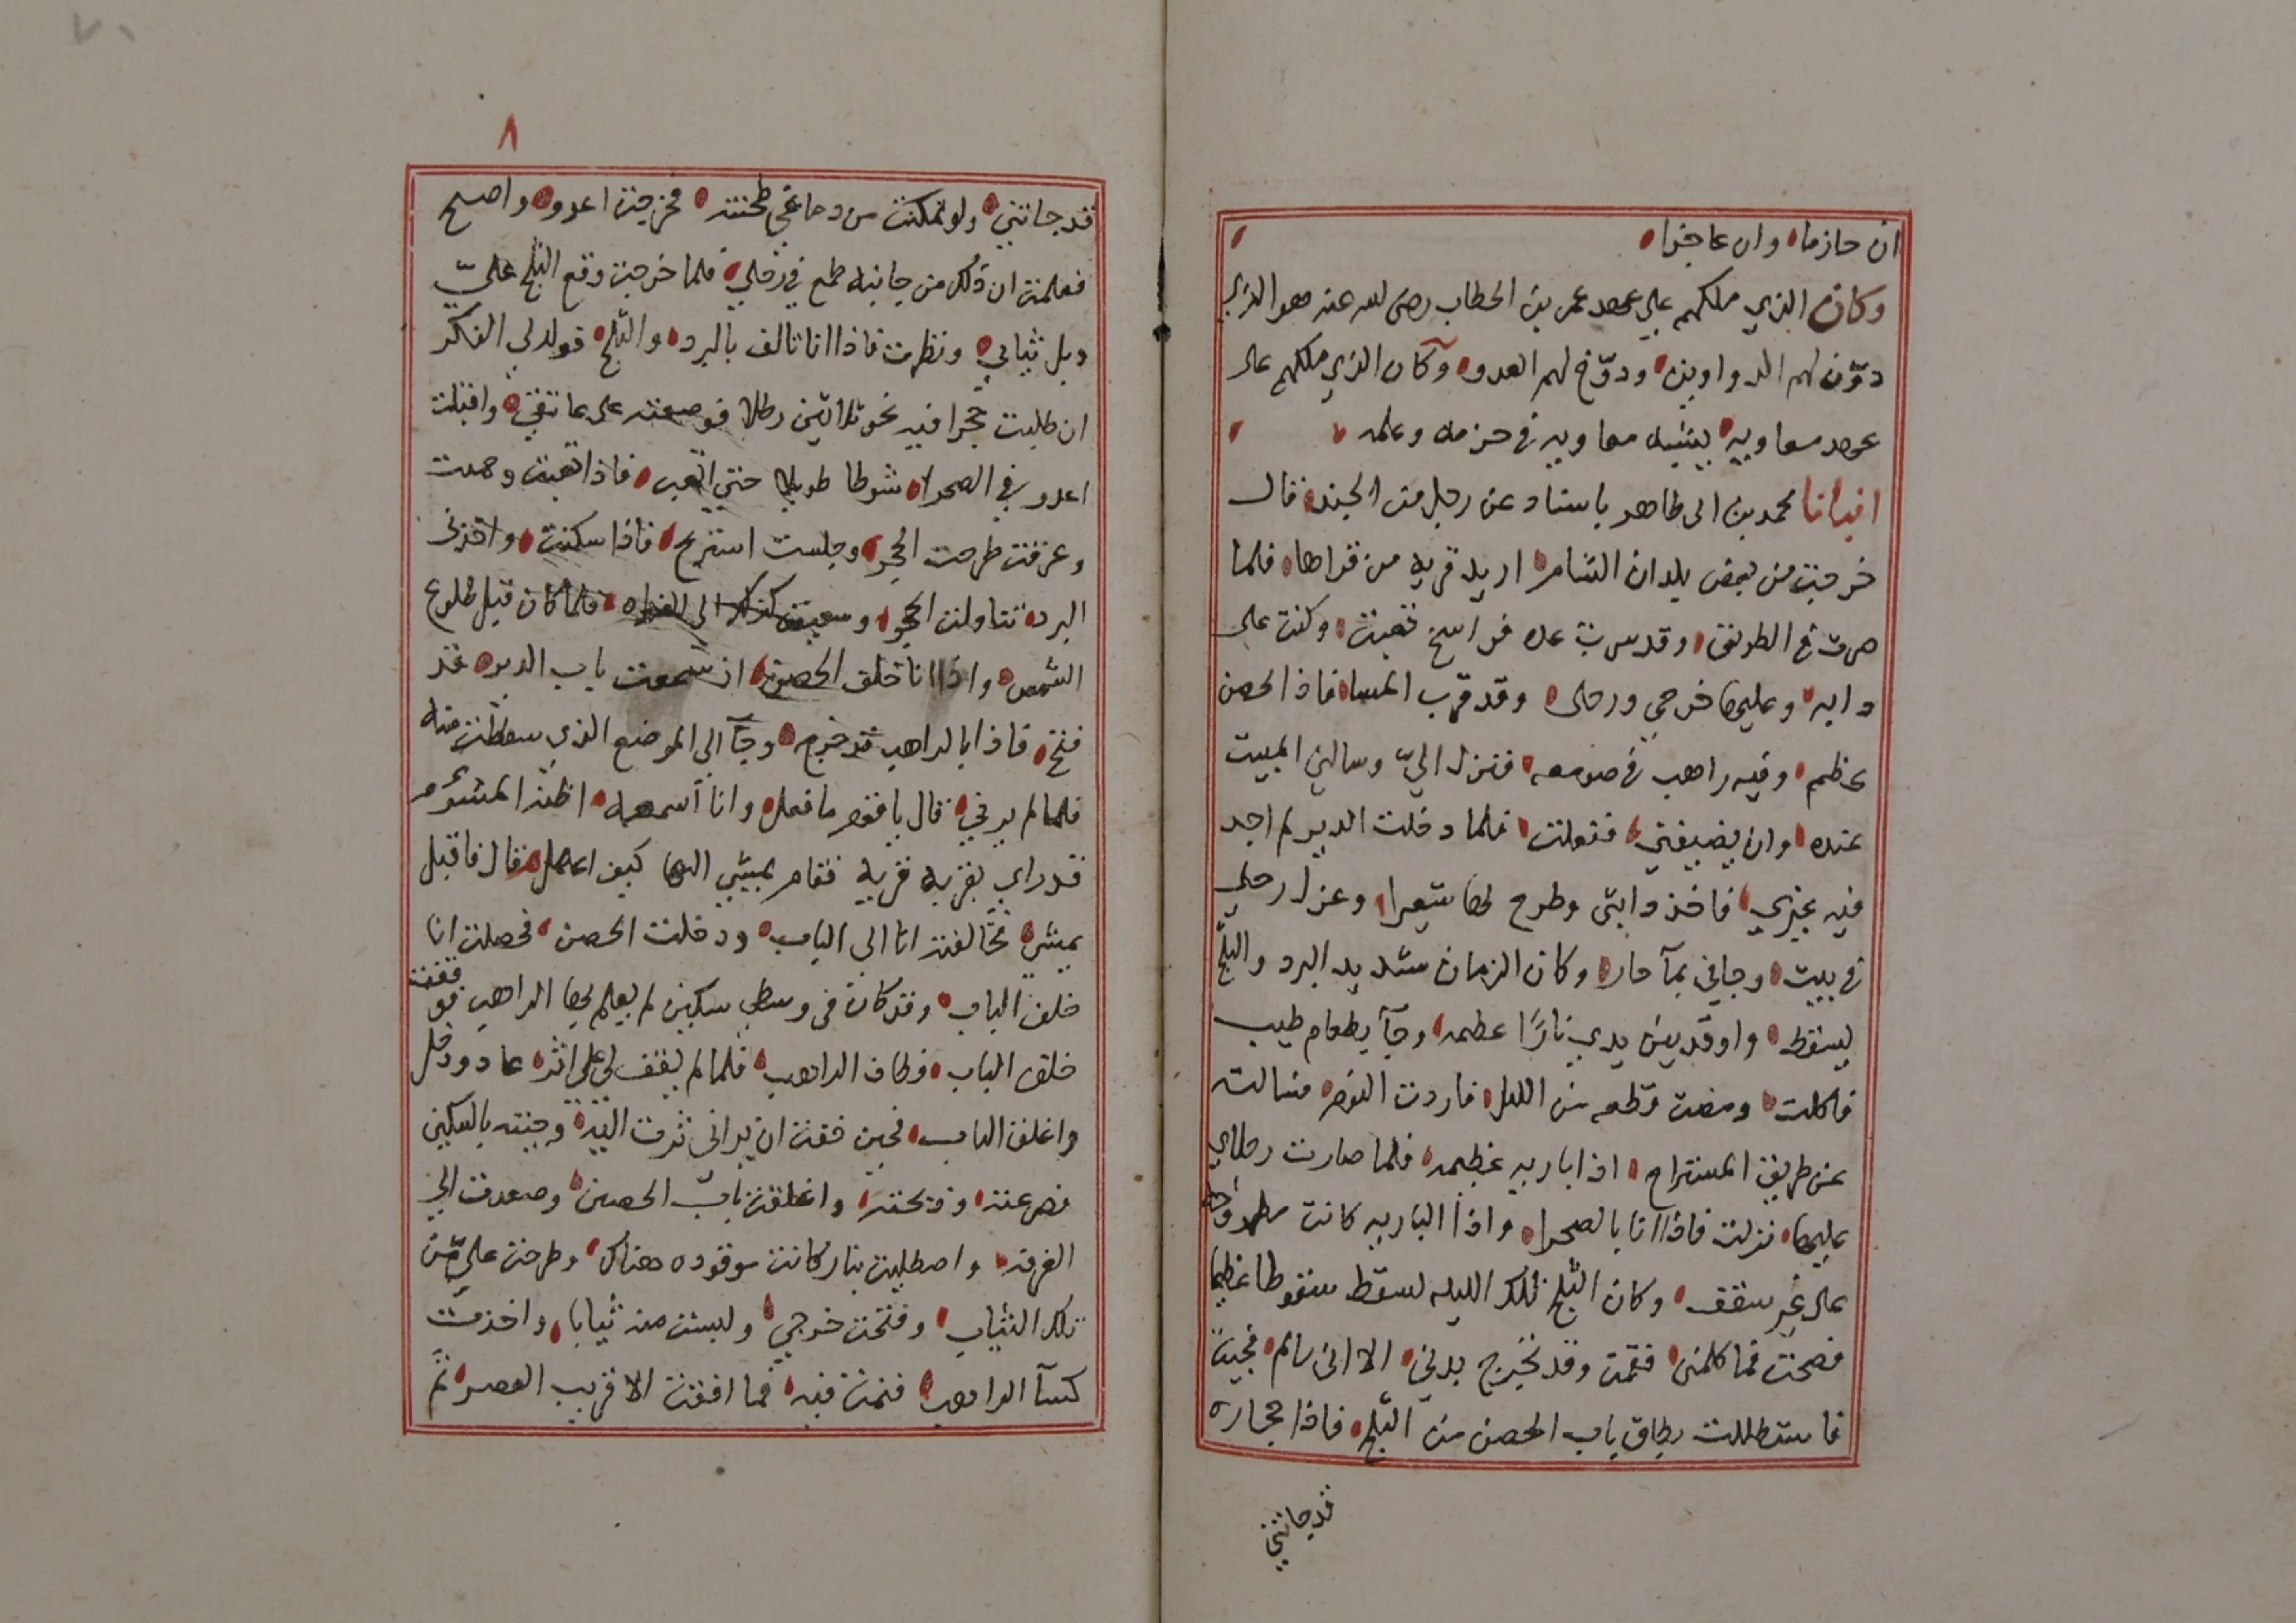 ان حازما وان عاجزا
وكان الذي ملكهم علي عهد عمر بن الخطاب رضى لله عنه هو الذي
دوّن لهم الدواوين ودوّخ لهم العدو وكان الذي ملكهم على
عهد معاويه يشبه معاويه في حزمه وعلمه
انبانا محمد بن ابى طاهر باسناد عن رجل من الجند قال
خرجت من بعض بلدان الشام اريد قريه من قراها فلما
صرت في الطريق وقد سرت عده فراسخ تعبت وكنت على
دابه وعليها خرجي ورحلى وقد قرب المسا فاذا حصن
عظيم وفيه راهب في صومعه فنزل اليّ وسالني المبيت
عنده وان يضيفني ففعلت فلما دخلت الدير لم اجد
فيه غيري فاخذ دابتى وطرح لها شعيرا وعزل رحلي
في بيت وجاني بمآ حار وكان الزمان شديد البرد والثلج
يسقط واوقد بين يدي نارًا عظيمه وجآ بطعام طيب
فاكلت ومضت قطعه من الليل فاردت النوم فسالته
عن طريق المستراح اذا باريه عظيمه فلما صارت رجلاي
عليها نزلت فاذا انا بالصحرا واذا الباريه كانت مطروحه
على غير سقف وكان الثلج تلك الليله يسقط سقوطا عظيما
فصحت فما كلمنى فقمت وقد تجرح بدني الا انى سالم فجيت
فاستظللت بطاق باب الحصن من الثلج فاذا حجاره
قد جاتني
٨
قد جاتني ولو تمكنت من دماغي طحنته فخرجت اعدو واصيح
فعلمت ان ذلك من جانبه طمع في رحلي فلما خرجت وقع الثلج عليّ
وبل ثيابي ونظرت فاذا انا تالف بالبرد والثلج فولد لي الفكر
ان طلبت حجرا فيه نحو ثلاثين رطلا فوضعته على عاتقي واقبلت
اعدو في الصحرا شوطا طويلا حتي اتعب فاذا تعبت وحميت
وعرقت طرحت الحجر وجلست استريح فاذا سكنت واخذنى
البرد تناولت الحجر وسعيت كذلك الى الغداه فلما كان قبل طلوع
الشمس واذا انا خلف الحصن اذ سمعت باب الدير قد
فتح فاذا بالراهب قد خرج وجآ الى الموضع الذي سقطت منه
فلما لم يرني قال يا قوم ما فعل وانا اسمعه اظن المشوم
قد راي بقربه قريه فقام يمشي اليها كيف اعمل قال فاقبل
يمشي فخالفته انا الى الباب ودخلت الحصن فحصلت انا
خلف الباب وقد كان فى وسطي سكين لم يعلم بها الراهب فوقفت
خلف الباب وطاف الراهب فلما لم يقف لى على اثر عاد ودخل
واغلق الباب فحين خفت ان يرانى ثرت اليه وجيته بالسكين
فصرعته وذبحته واغلقت باب الحصن وصعدت الي
الغرفه واصطليت بنار كانت موقوده هناك وطرحت علي من
تلك الثياب وفتحت خرجي ولبست منه ثيابا واخذت
كسآ الراهب فنمت فيه فما افقت الا قريب العصر ثم